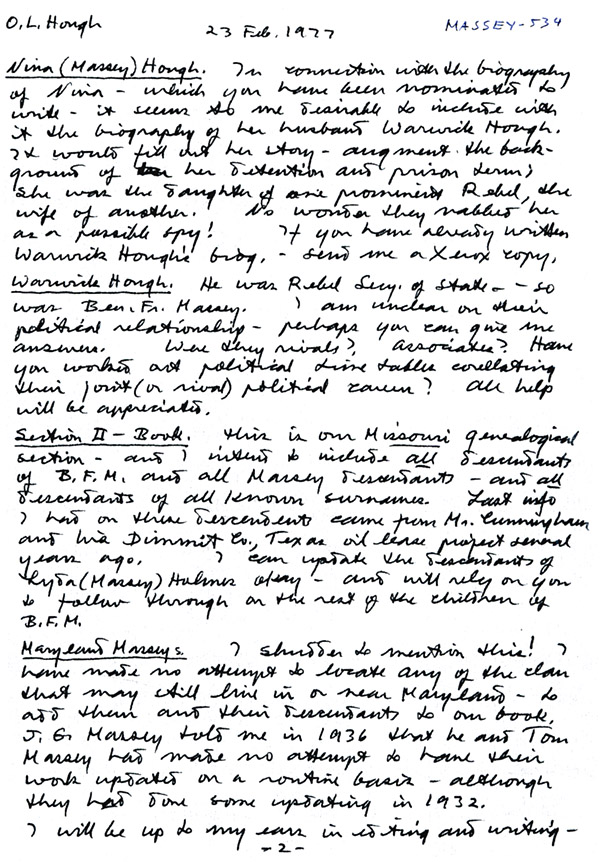 O.L. Hough
23 Feb. 1977
MASSEY-534
Nina (Massey) Hough. In connection with the biography
of Nina - which you have been nominated to
write - it seems to me desirable to include with
it the biography of her husband Warwick Hough.
It would fill out her story - augment the back-
ground of her detention and prison term;
she was the daughter of one prominent Rebel, the
wife of another. No wonder they nabbed her
as a possible spy! If you have already written
Warwick Hough's biog. - send me a Xerox copy.
Warwick Hough. He was Rebel Secy. of State - - so
was Ben. Fr. Massey. I am unclear on their
political relationship - perhaps you can give me
answers. Were they rivals?, associates? Have
you worked out political time tables corellating
their joint (or rival) political career? All help
will be appreciated.
Section II - Book. This is our Missouri genealogical
section - and I intend to include all descendants
of B.F.M. and all Massey descendants - and all
descendants of all known surnames. Last info
I had on these descendents came from Mr. Cunningham
and his Dimmit Co., Texas oil lease project several
years ago. I can update the descendants of
Lyda (Massey) Holmes okay - and will rely on you
to follow through on the rest of the children of
B.F.M.
Maryland Masseys. I shudder to mention this! I
have made no attempt to locate any of the clan
that may still live in or near Maryland - to
add them and their descendants to our book.
J. G. Massey told me in 1936 that he and Tom
Massey had made no attempt to have their
work updated on a routine basis - although
they had done some updating in 1932.
I will be up to my ears in editing and writing -
-2-